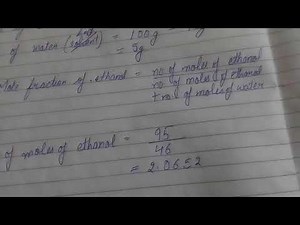 of water (solvent) = 100g
= 5g
Mole fraction of ethanol = no of moles of ethanol
no of moles of ethanol
+ no of moles of water
of moles of ethanol = 95
46
= 2.0652